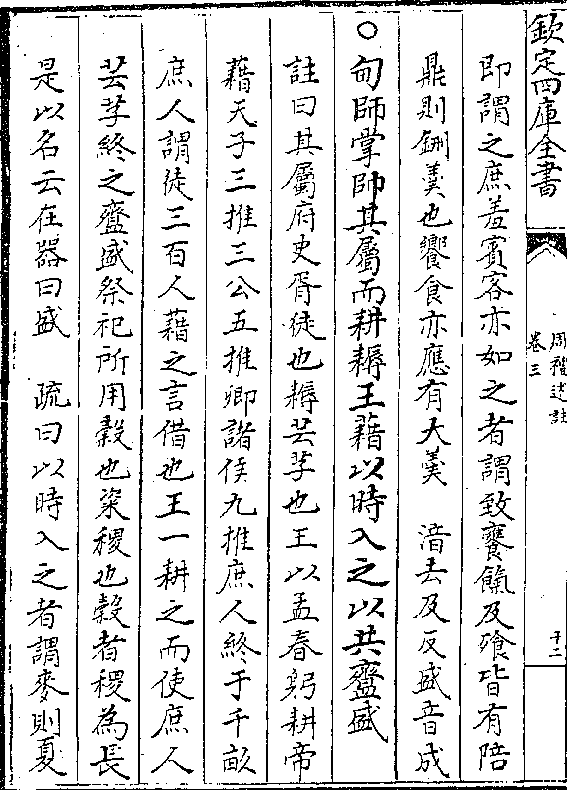 欽定四庫全書
周禮述註
卷三
十二
即謂之庶羞賓客亦如之者謂致饔餼及飱皆有陪
鼎則鉶羹也饗食亦應有大羹　湆去及反盛音成
○甸師掌帥其屬而耕耨王藉以時入之以共齍盛
註曰其屬府史胥徒也耨芸芓也王以孟春躬耕帝
藉天子三推三公五推卿諸侯九推庶人終于千畝
庶人謂徒三百人藉之言借也王一耕之而使庶人
芸芓終之齍盛祭祀所用穀也粢稷也穀者稷為長
是以名云在器曰盛　疏曰以時入之者謂麥則夏